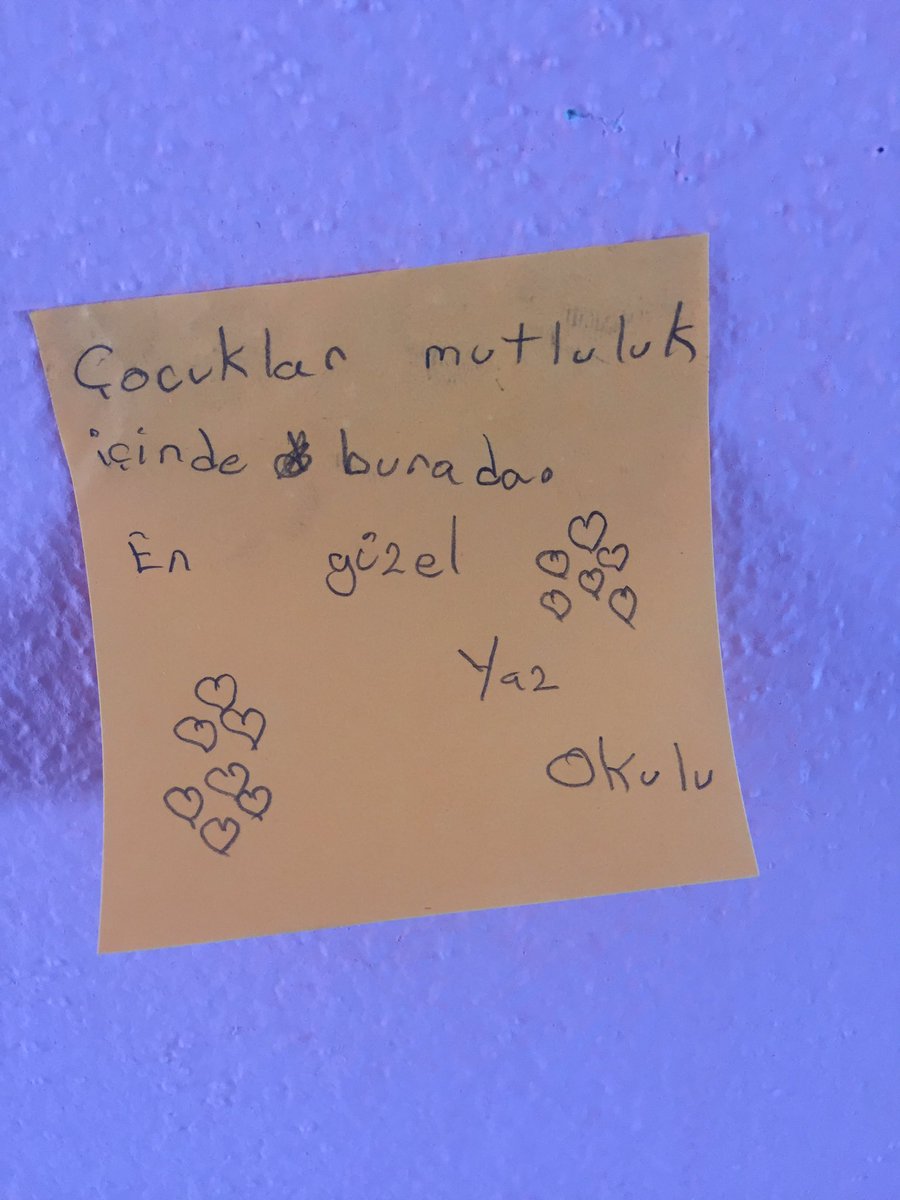 Çocuklar mutluluk
içinde burada.
En güzel
Yaz
Okulu